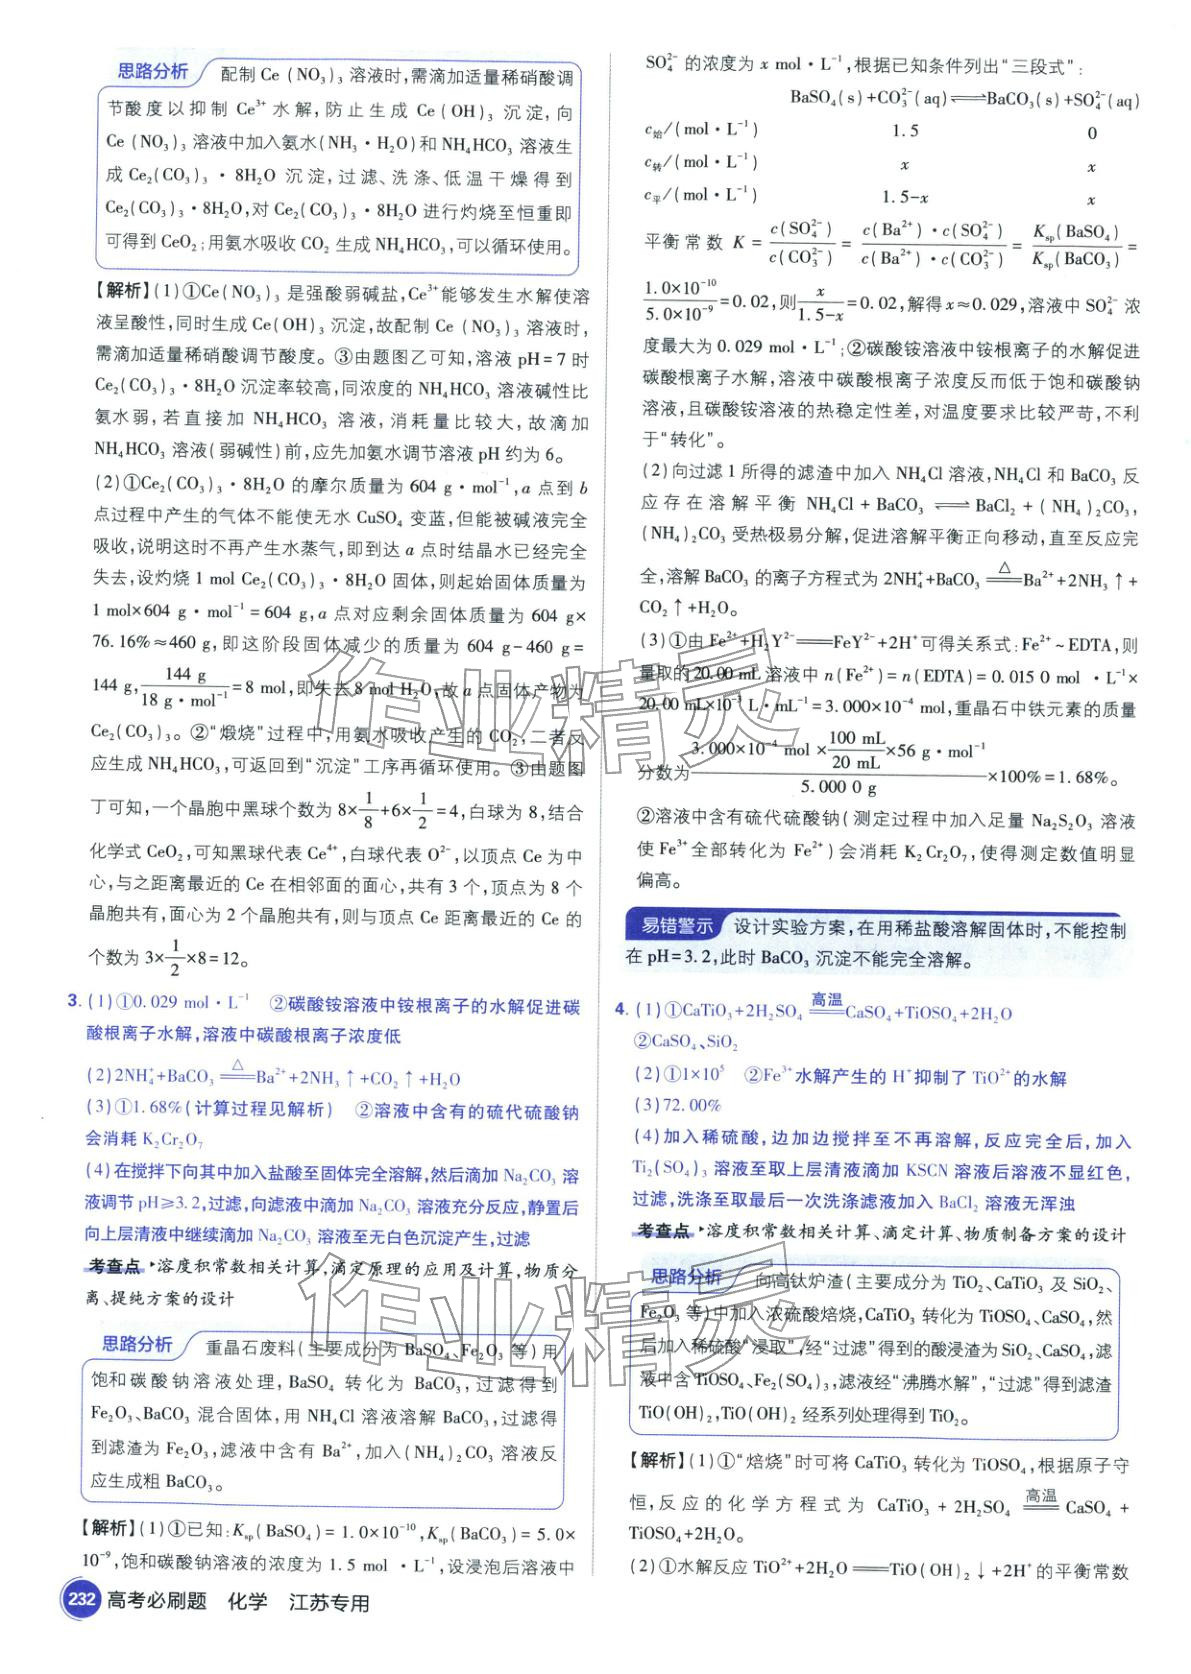 思路分析 配制Ce(NO₃)₃溶液时,需滴加适量稀硝酸调
节酸度以抑制Ce³⁺水解,防止生成Ce(OH)₃沉淀,向
Ce(NO₃)₃溶液中加入氨水(NH₃·H₂O)和NH₄HCO₃溶液生
成Ce₂(CO₃)₃·8H₂O沉淀,过滤、洗涤、低温干燥得到
Ce₂(CO₃)₃·8H₂O,对Ce₂(CO₃)₃·8H₂O进行灼烧至恒重即
可得到CeO₂;用氨水吸收CO₂生成NH₄HCO₃,可以循环使用。
【解析】(1)①Ce(NO₃)₃是强酸弱碱盐,Ce³⁺能够发生水解使溶
液呈酸性,同时生成Ce(OH)₃沉淀,故配制Ce(NO₃)₃溶液时,
需滴加适量稀硝酸调节酸度。③由题图乙可知,溶液pH=7时
Ce₂(CO₃)₃·8H₂O沉淀率较高,同浓度的NH₄HCO₃溶液碱性比
氨水弱,若直接加NH₄HCO₃溶液,消耗量比较大,故滴加
NH₄HCO₃溶液(弱碱性)前,应先加氨水调节溶液pH约为6。
(2)①Ce₂(CO₃)₃·8H₂O的摩尔质量为604 g·mol⁻¹,a点到b
点过程中产生的气体不能使无水CuSO₄变蓝,但能被碱液完全
吸收,说明这时不再产生水蒸气,即到达a点时结晶水已经完全
失去,设灼烧1 mol Ce₂(CO₃)₃·8H₂O固体,则起始固体质量为
1 mol×604 g·mol⁻¹=604 g,a点对应剩余固体质量为604 g×
76.16%≈460 g,即这阶段固体减少的质量为604 g-460 g=
144 g,144 g/18 g·mol⁻¹=8 mol,即失去8 mol H₂O,故a点固体产物为
Ce₂(CO₃)₃。②“煅烧”过程中,用氨水吸收产生的CO₂,二者反
应生成NH₄HCO₃,可返回到“沉淀”工序再循环使用。③由题图
丁可知,一个晶胞中黑球个数为8×1/8+6×1/2=4,白球为8,结合
化学式CeO₂,可知黑球代表Ce⁴⁺,白球代表O²⁻,以顶点Ce为中
心,与之距离最近的Ce在相邻面的面心,共有3个,顶点为8个
晶胞共有,面心为2个晶胞共有,则与顶点Ce距离最近的Ce的
个数为3×1/2×8=12。
3. (1)①0.029 mol·L⁻¹ ②碳酸铵溶液中铵根离子的水解促进碳
酸根离子水解,溶液中碳酸根离子浓度低
(2)2NH₄⁺+BaCO₃≜Ba²⁺+2NH₃↑+CO₂↑+H₂O
(3)①1.68%(计算过程见解析) ②溶液中含有的硫代硫酸钠
会消耗K₂Cr₂O₇
(4)在搅拌下向其中加入盐酸至固体完全溶解,然后滴加Na₂CO₃溶
液调节pH≥3.2,过滤,向滤液中滴加Na₂CO₃溶液充分反应,静置后
向上层清液中继续滴加Na₂CO₃溶液至无白色沉淀产生,过滤
考查点▸溶度积常数相关计算,滴定原理的应用及计算,物质分
离、提纯方案的设计
思路分析 重晶石废料(主要成分为BaSO₄、Fe₂O₃等)用
饱和碳酸钠溶液处理,BaSO₄转化为BaCO₃,过滤得到
Fe₂O₃、BaCO₃混合固体,用NH₄Cl溶液溶解BaCO₃,过滤得
到滤渣为Fe₂O₃,滤液中含有Ba²⁺,加入(NH₄)₂CO₃溶液反
应生成粗BaCO₃。
【解析】(1)①已知:Ksp(BaSO₄)=1.0×10⁻¹⁰,Ksp(BaCO₃)=5.0×
10⁻⁹,饱和碳酸钠溶液的浓度为1.5 mol·L⁻¹,设浸泡后溶液中
232 高考必刷题 化学 江苏专用
SO₄²⁻的浓度为x mol·L⁻¹,根据已知条件列出“三段式”:
BaSO₄(s)+CO₃²⁻(aq)⇌BaCO₃(s)+SO₄²⁻(aq)
c始/(mol·L⁻¹) 1.5 0
c转/(mol·L⁻¹) x x
c平/(mol·L⁻¹) 1.5-x x
平衡常数K=c(SO₄²⁻)/c(CO₃²⁻)=c(Ba²⁺)·c(SO₄²⁻)/c(Ba²⁺)·c(CO₃²⁻)=Ksp(BaSO₄)/Ksp(BaCO₃)=
1.0×10⁻¹⁰/5.0×10⁻⁹=0.02,则x/1.5-x=0.02,解得x≈0.029,溶液中SO₄²⁻浓
度最大为0.029 mol·L⁻¹;②碳酸铵溶液中铵根离子的水解促进
碳酸根离子水解,溶液中碳酸根离子浓度反而低于饱和碳酸钠
溶液,且碳酸铵溶液的热稳定性差,对温度要求比较严苛,不利
于“转化”。
(2)向过滤1所得的滤渣中加入NH₄Cl溶液,NH₄Cl和BaCO₃反
应存在溶解平衡NH₄Cl+BaCO₃⇌BaCl₂+(NH₄)₂CO₃,
(NH₄)₂CO₃受热极易分解,促进溶解平衡正向移动,直至反应完
全,溶解BaCO₃的离子方程式为2NH₄⁺+BaCO₃≜Ba²⁺+2NH₃↑+
CO₂↑+H₂O。
(3)①由Fe²⁺+H₂Y²⁻══FeY²⁻+2H⁺可得关系式:Fe²⁺~EDTA,则
量取的20.00 mL溶液中n(Fe²⁺)=n(EDTA)=0.015 0 mol·L⁻¹×
20.00 mL×10⁻³ L·mL⁻¹=3.000×10⁻⁴ mol,重晶石中铁元素的质量
分数为3.000×10⁻⁴ mol×100 mL/20 mL×56 g·mol⁻¹/5.000 0 g×100%=1.68%。
②溶液中含有硫代硫酸钠(测定过程中加入足量Na₂S₂O₃溶液
使Fe³⁺全部转化为Fe²⁺)会消耗K₂Cr₂O₇,使得测定数值明显
偏高。
易错警示 设计实验方案,在用稀盐酸溶解固体时,不能控制
在pH=3.2,此时BaCO₃沉淀不能完全溶解。
4. (1)①CaTiO₃+2H₂SO₄ 高温══ CaSO₄+TiOSO₄+2H₂O
②CaSO₄、SiO₂
(2)①1×10⁵ ②Fe³⁺水解产生的H⁺抑制了TiO²⁺的水解
(3)72.00%
(4)加入稀硫酸,边加边搅拌至不再溶解,反应完全后,加入
Ti₂(SO₄)₃溶液至取上层清液滴加KSCN溶液后溶液不显红色,
过滤,洗涤至取最后一次洗涤滤液加入BaCl₂溶液无浑浊
考查点▸溶度积常数相关计算、滴定计算、物质制备方案的设计
思路分析 向高钛炉渣(主要成分为TiO₂、CaTiO₃及SiO₂、
Fe₂O₃等)中加入浓硫酸焙烧,CaTiO₃转化为TiOSO₄、CaSO₄,然
后加入稀硫酸“浸取”,经“过滤”得到的酸浸渣为SiO₂、CaSO₄,滤
液中含TiOSO₄、Fe₂(SO₄)₃,滤液经“沸腾水解”,“过滤”得到滤渣
TiO(OH)₂,TiO(OH)₂经系列处理得到TiO₂。
【解析】(1)①“焙烧”时可将CaTiO₃转化为TiOSO₄,根据原子守
恒,反应的化学方程式为CaTiO₃+2H₂SO₄ 高温══ CaSO₄+
TiOSO₄+2H₂O。
(2)①水解反应TiO²⁺+2H₂O══TiO(OH)₂↓+2H⁺的平衡常数
作业精灵
作业精灵